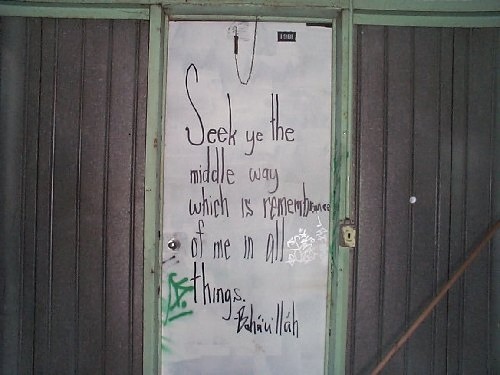 Seek ye the
middle way
which is remembrance
of me in all
things.
Bahá'u'lláh